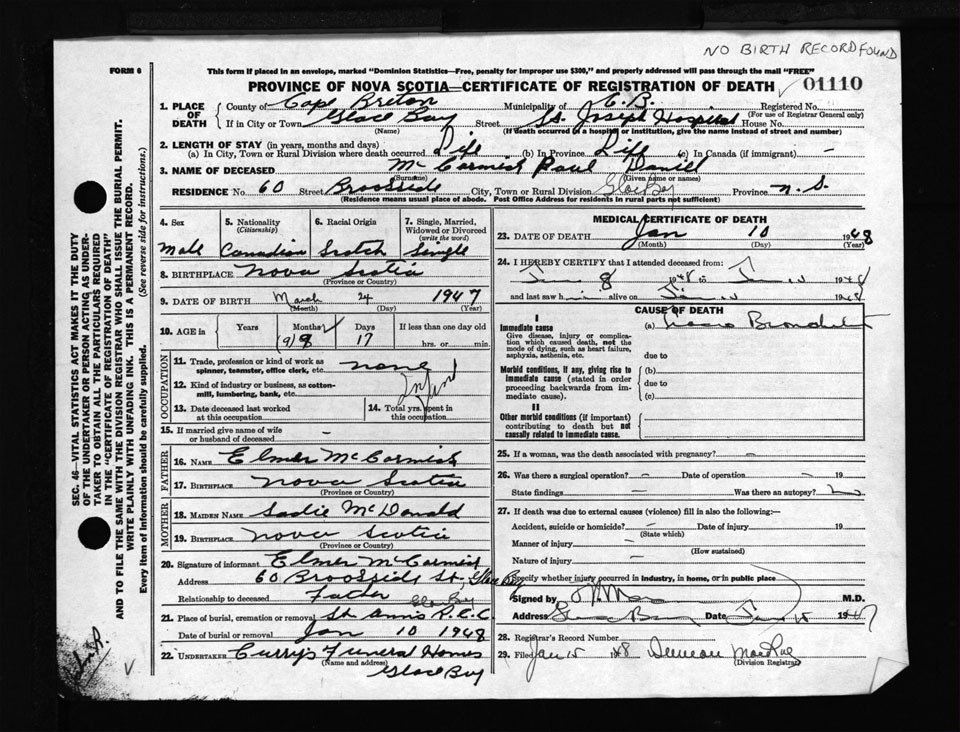 NO BIRTH RECORD FOUND
FORM 6
This form if placed in an envelope, marked "Dominion Statistics—Free, penalty for improper use $300," and properly addressed will pass through the mail "FREE"
PROVINCE OF NOVA SCOTIA—CERTIFICATE OF REGISTRATION OF DEATH 01110
1. PLACE OF DEATH
County of Cape Breton Municipality of C.B. Registered No.
(For use of Registrar General only)
If in City or Town Glace Bay Street St. Joseph Hospital House No.
(Name) (If death occurred in a hospital or institution, give the name instead of street and number)
2. LENGTH OF STAY (in years, months and days)
(a) In City, Town or Rural Division where death occurred Life (b) In Province Life (c) In Canada (if immigrant) -
3. NAME OF DECEASED McCormick Paul Daniel
(Surname) (Given name or names)
RESIDENCE No. 60 Street Brookside City, Town or Rural Division Glace Bay Province N.S.
(Residence means usual place of abode. Post Office Address for residents in rural parts not sufficient)
4. Sex
Male
5. Nationality
(Citizenship)
Canadian
6. Racial Origin
Scotch
7. Single, Married, Widowed or Divorced
(write the word)
Single
8. BIRTHPLACE Nova Scotia
(Province or Country)
9. DATE OF BIRTH March 24 1947
(Month) (Day) (Year)
10. AGE in Years Months Days If less than one day old
9 17 hrs. or min.
OCCUPATION
11. Trade, profession or kind of work as spinner, teamster, office clerk, etc. none
12. Kind of industry or business, as cotton-mill, lumbering, bank, etc. Infant
13. Date deceased last worked at this occupation
14. Total yrs. spent in this occupation
15. If married give name of wife or husband of deceased -
FATHER
16. NAME Elmer McCormick
17. BIRTHPLACE Nova Scotia
(Province or Country)
MOTHER
18. MAIDEN NAME Sadie McDonald
19. BIRTHPLACE Nova Scotia
(Province or Country)
20. Signature of informant Elmer McCormick
Address 60 Brookside St, Glace Bay
Relationship to deceased Father
21. Place of burial, cremation or removal St. Anns R.C.C Glace Bay
Date of burial or removal Jan 10 1948
22. UNDERTAKER Curry's Funeral Homes
(Name and address)
Glace Bay
MEDICAL CERTIFICATE OF DEATH
23. DATE OF DEATH Jan 10 1948
(Month) (Day) (Year)
24. I HEREBY CERTIFY that I attended deceased from:
8 1948 to 1948
and last saw him alive on 1948
CAUSE OF DEATH
I
Immediate cause
Give disease, injury or complication which caused death, not the mode of dying, such as heart failure, asphyxia, asthenia, etc.
(a)
due to
Morbid conditions, if any, giving rise to immediate cause (stated in order proceeding backwards from immediate cause).
(b)
due to
(c)
II
Other morbid conditions (if important) contributing to death but not causally related to immediate cause.
25. If a woman, was the death associated with pregnancy? -
26. Was there a surgical operation? - Date of operation - 19
State findings - Was there an autopsy?
27. If death was due to external causes (violence) fill in also the following:—
Accident, suicide or homicide? - Date of injury 19
(State which)
Manner of injury -
(How sustained)
Nature of injury -
Specify whether injury occurred in industry, in home, or in public place
Signed by M.D.
Address Date
28. Registrar's Record Number
29. Filed Jan 15 1948 Duncan MacRae
(Division Registrar)
SEC. 46—VITAL STATISTICS ACT MAKES IT THE DUTY
OF THE UNDERTAKER OR PERSON ACTING AS UNDER-
TAKER TO OBTAIN ALL THE PARTICULARS REQUIRED
IN THE "CERTIFICATE OF REGISTRATION OF DEATH"
AND TO FILE THE SAME WITH THE DIVISION REGISTRAR WHO SHALL ISSUE THE BURIAL PERMIT.
WRITE PLAINLY WITH UNFADING INK. THIS IS A PERMANENT RECORD.
Every item of Information should be carefully supplied. (See reverse side for instructions.)